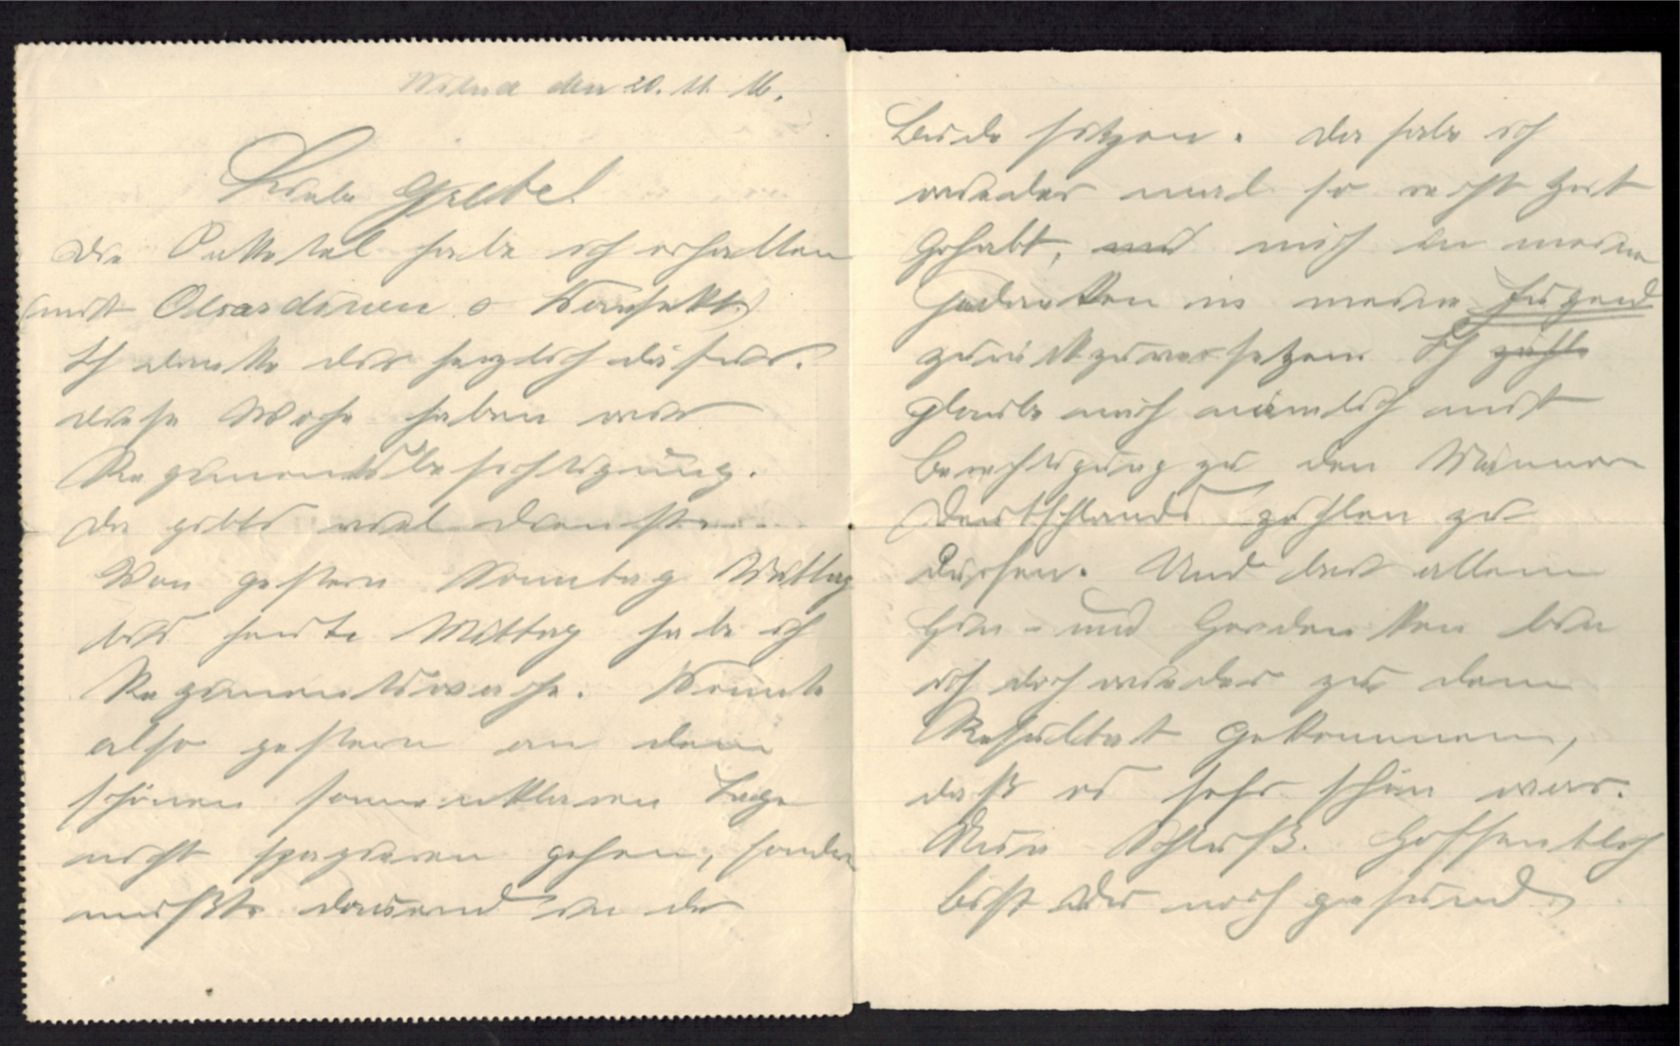 Wilna den 20. 11. 16.
Liebe Gretel!
Die Paketel habe ich erhalten
(mit Ölsardinen o Konfekt.)
Ich danke dir herzlich dafür.
Diese Woche haben wir
Regimentsbesichtigung.
Da gibts viel Dienst.
Von gestern Sonntag Mittag
bis heute Mittag habe ich
Regimentswache. Konnte
also gestern an dem
schönen sonnenklaren Tage
nicht spazieren gehen, sondern
mußte dauernd in der
Bude sitzen. Da habe ich
wieder mal so recht Zeit
gehabt, und mich in meinen
Gedanken in meine Jugend
zurückzuversetzen. Ich zähle
glaube mich nämlich mit
Berechtigung zu den Männern
Deutschlands zählen zu
dürfen. Und bei allem
Hin- und Herdenken bin
ich doch wieder zu dem
Resultat gekommen,
daß es sehr schön war.
Nun Schluß. Hoffentlich
bist du noch gesund